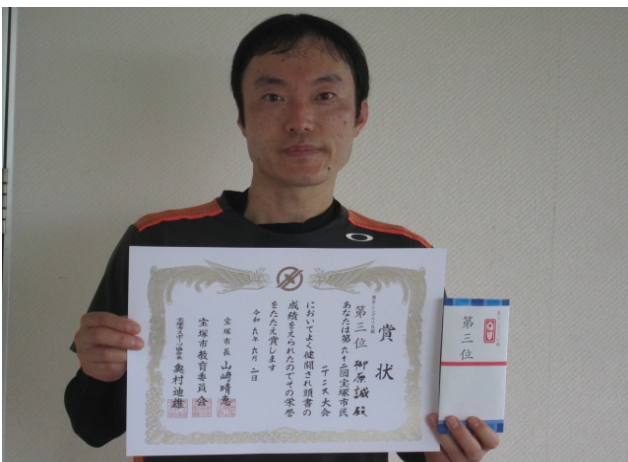 賞状
第三位 原誠殿
あなたは第六十二回宝塚市民
テニス大会
においてよく健闘され頭書の
成績をえられたのでその栄誉
をたたえ賞します
令和六年六月二日
宝塚市長 山﨑晴恵
宝塚市教育委員会
奥村迪雄
第三位